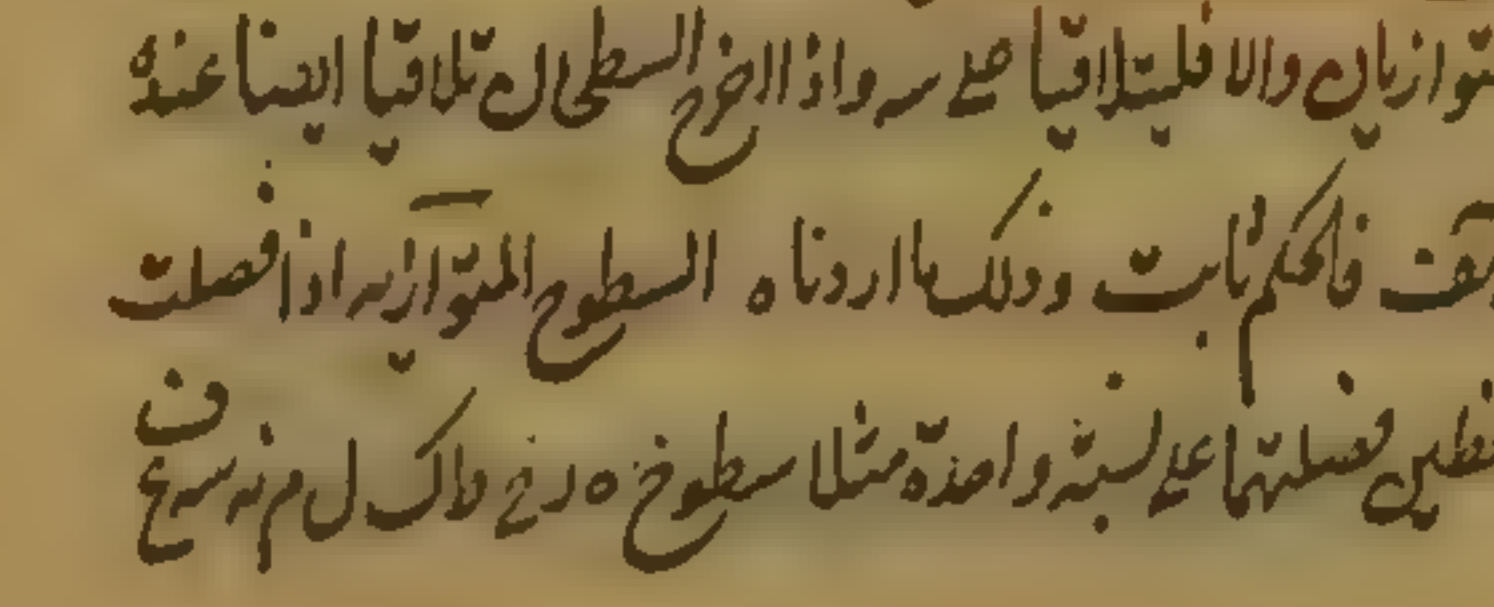 متوازيان والا فليتلاقيا على سه واذا اخرج السطحى ال تلاقيا ايضا عنده
فالحكم ثابت وذلك ما اردناه السطوح المتوازيه اذا فصلت
خطين فصلتهما على نسبة واحدة مثلا سطوح ه ر ح ط ك ل م نه سع ف